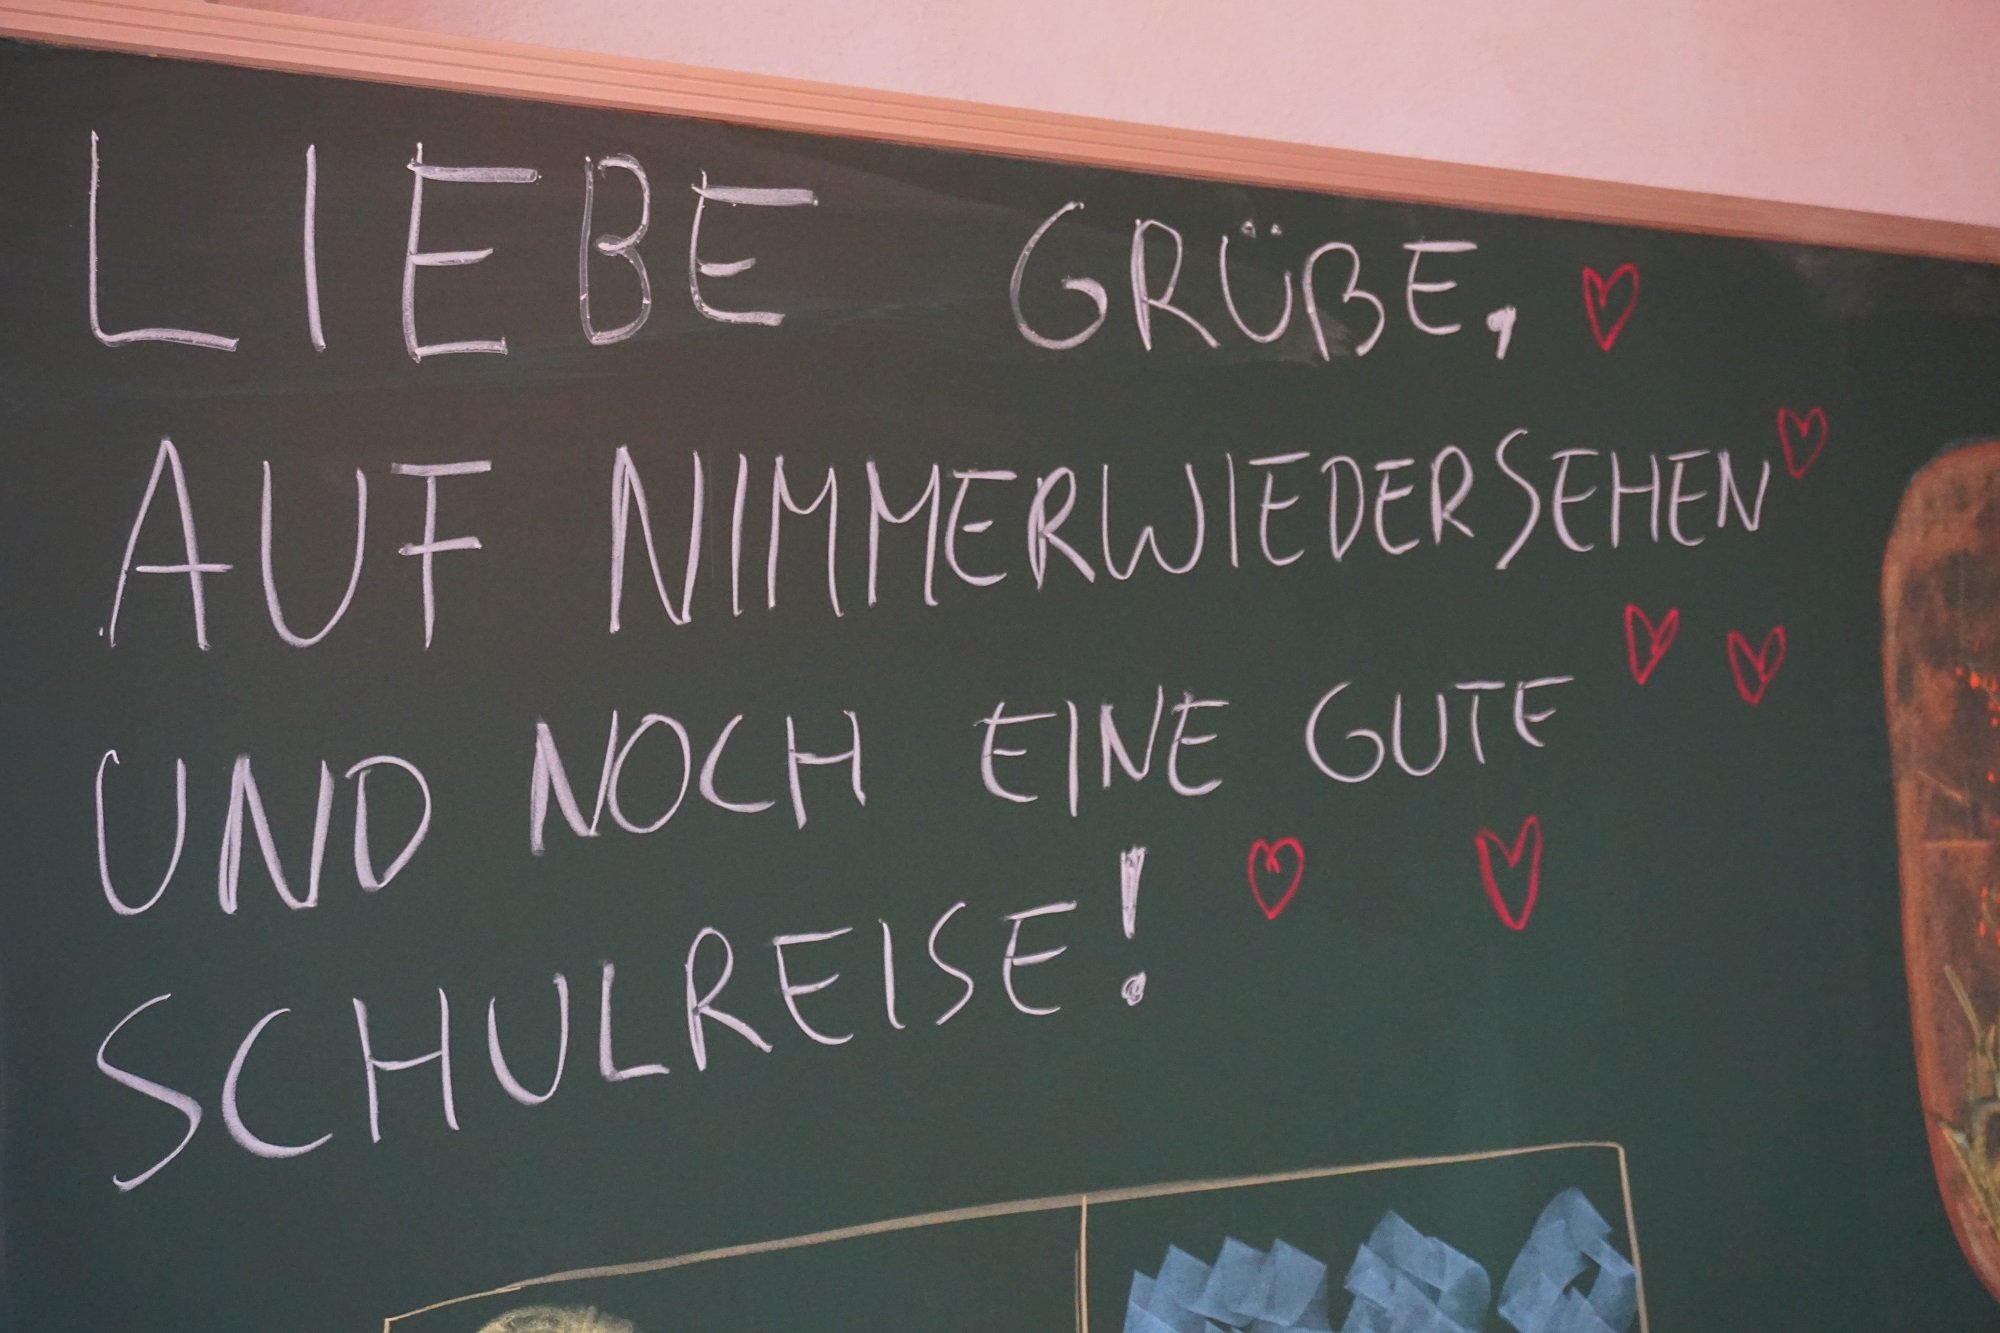 LIEBE GRÜßE,
AUF NIMMERWIEDERSEHEN
UND NOCH EINE GUTE
SCHULREISE!